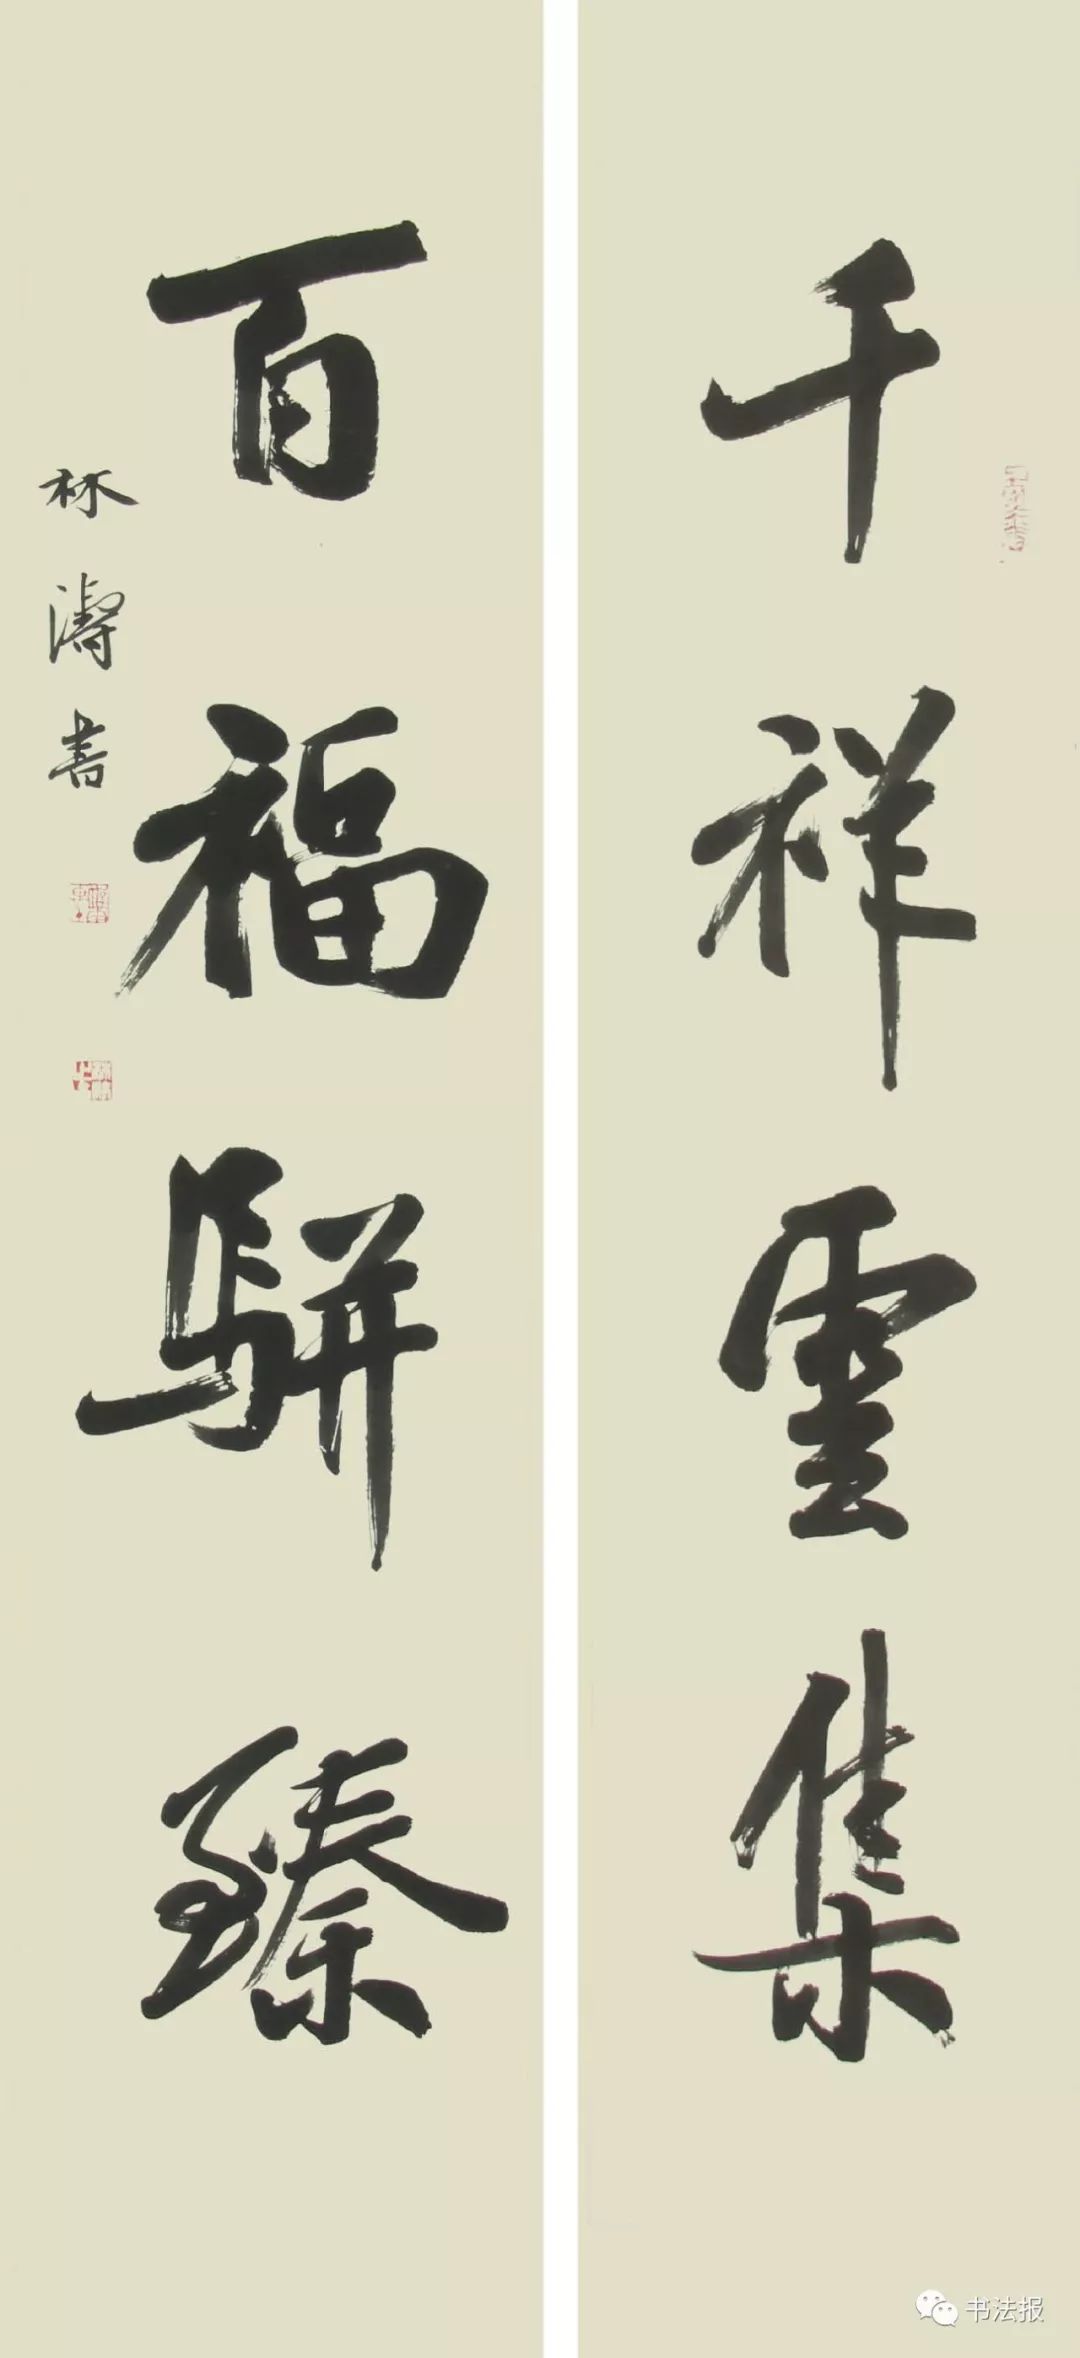 千祥雲集
百福駢臻
林濤書
书法报